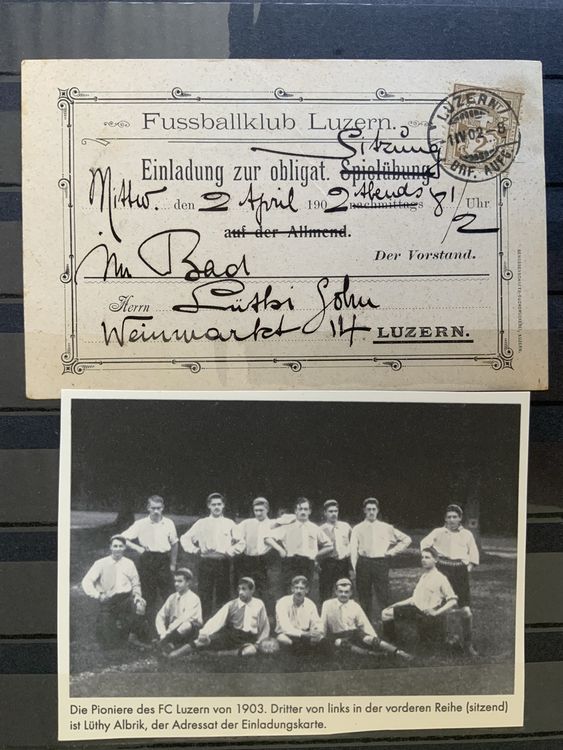 Fussballklub Luzern.
Sitzung
Einladung zur obligat. Spielübung
Mittw. den 2 April 1902 Abends nachmittags 8 1/2 Uhr
auf der Allmend.
Der Vorstand.
im Bad
Herrn Lüthi Sohn
Weinmarkt 14 LUZERN.
LUZERN
1 IV 02 - 8
BRF. AUFG.
2
Die Pioniere des FC Luzern von 1903. Dritter von links in der vorderen Reihe (sitzend)
ist Lüthy Albrik, der Adressat der Einladungskarte.